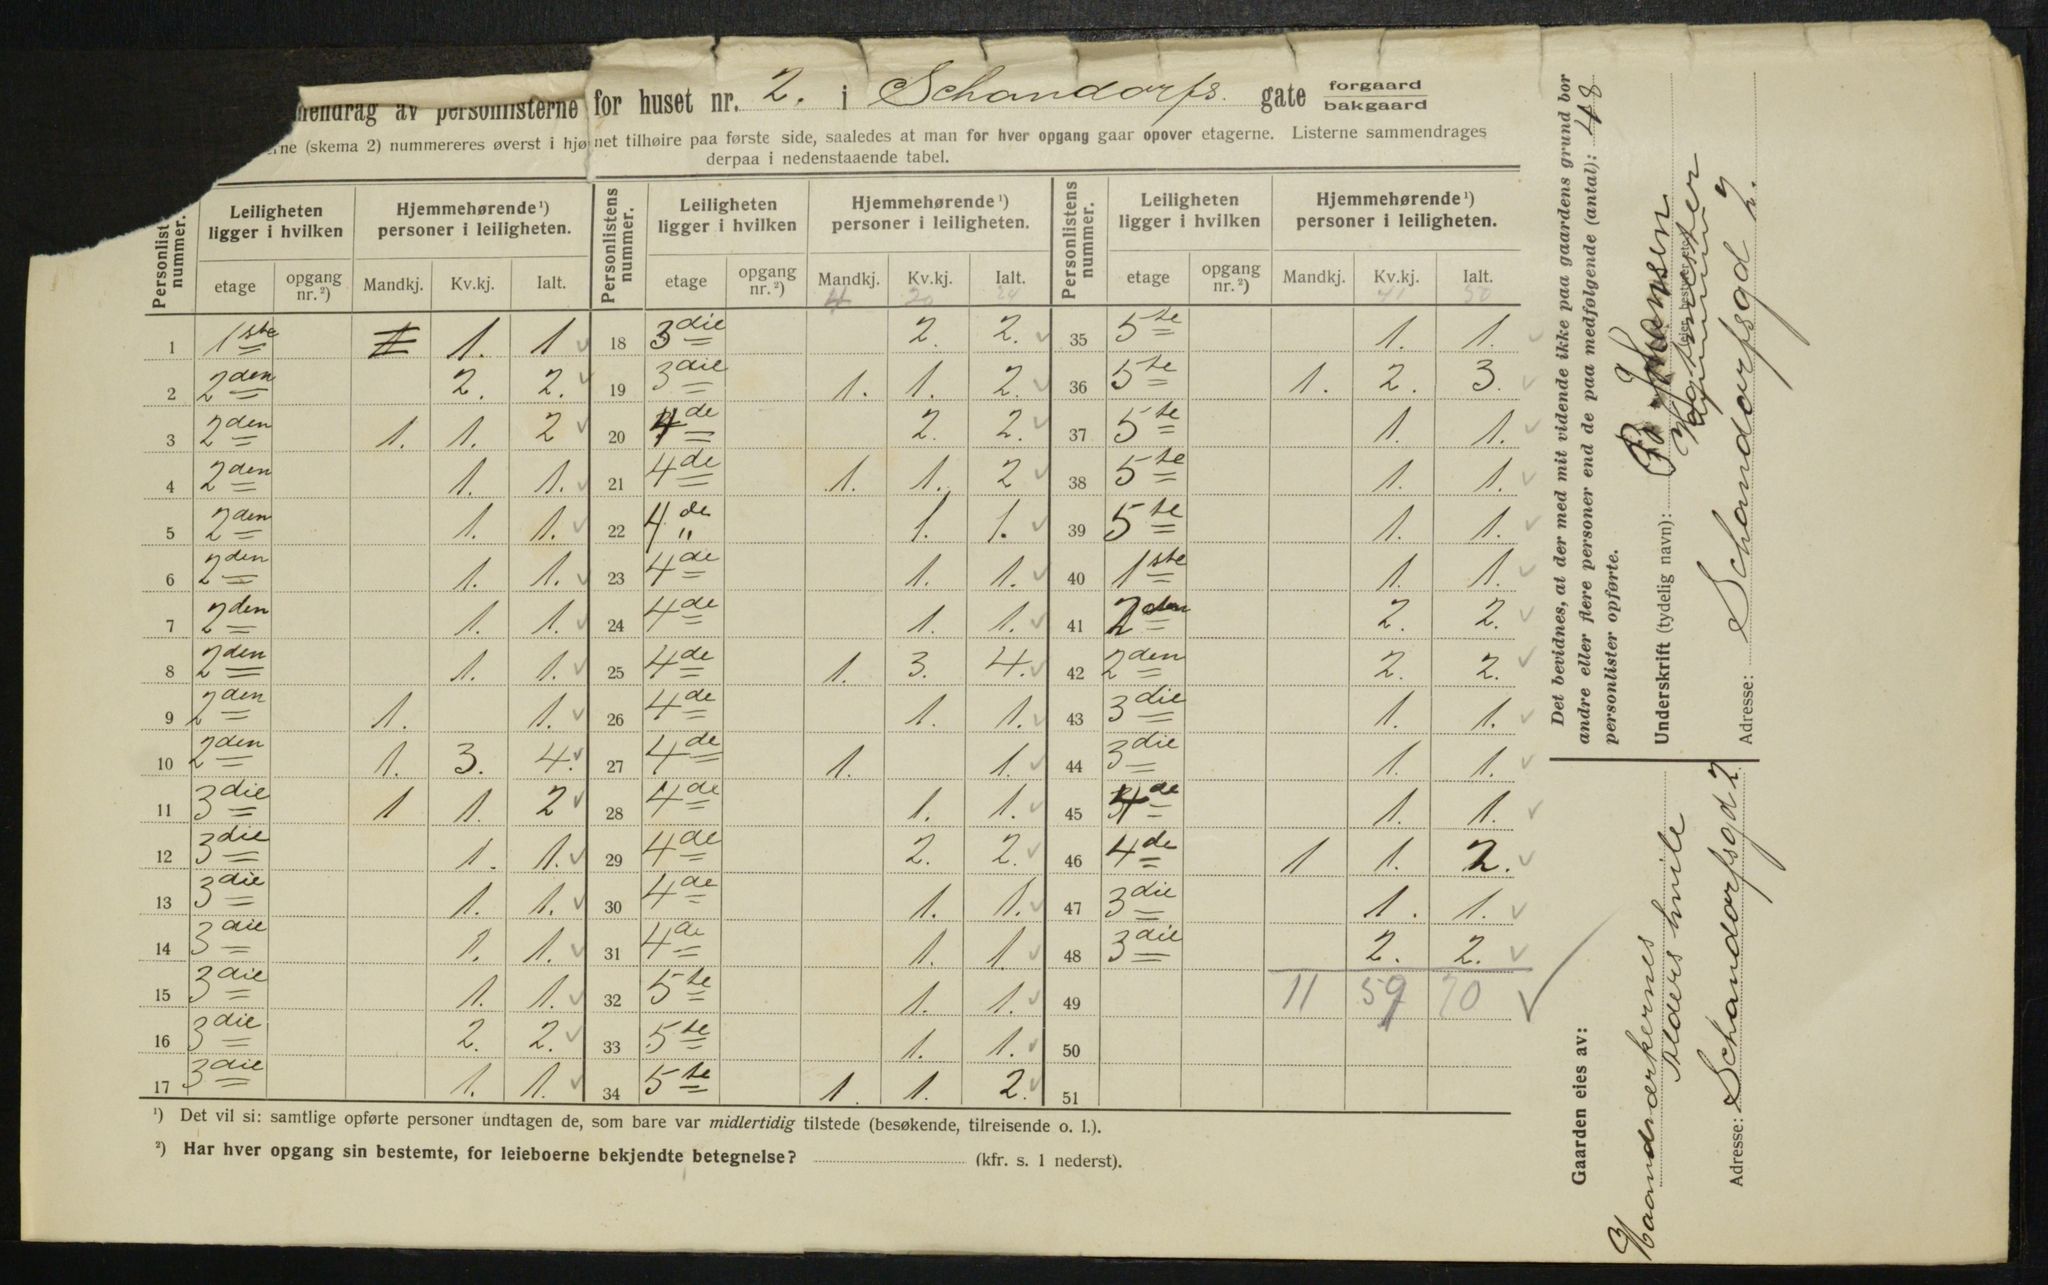 mendrag av personlisterne for huset nr. 2. i Schandorfs. gate forgaard
bakgaard
erne (skema 2) nummereres øverst i hjø net tilhøire paa første side, saaledes at man for hver opgang gaar opover etagerne. Listerne sammendrages
derpaa i nedenstaaende tabel.
Personlist nummer. Leiligheten ligger i hvilken Hjemmehørende ¹) personer i leiligheten. Personlistens nummer. Leiligheten ligger i hvilken Hjemmehørende ¹) personer i leiligheten. Personlistens nummer. Leiligheten ligger i hvilken Hjemmehørende ¹) personer i leiligheten.
etage opgang nr. ²) Mandkj. Kv.kj. Ialt. etage opgang nr. ²) Mandkj. Kv.kj. Ialt. etage opgang nr. ²) Mandkj. Kv.kj. Ialt.
4 20 24 41 50
1 1ste 1 1. 1 18 3die 2. 2. 35 5te 1. 1.
2 2den 2. 2. 19 3die 1. 1. 2. 36 5te 1. 2. 3.
3 2den 1. 1. 2 20 4de 2. 2. 37 5te 1. 1.
4 2den 1. 1. 21 4de 1. 1. 2 38 5te 1. 1.
5 2den 1. 1. 22 4de 1. 1. 39 5te 1. 1.
6 2den 1. 1. 23 4de 1. 1. 40 1ste 1. 1.
7 2den 1. 1. 24 4de 1. 1. 41 2den 2. 2.
8 2den 1. 1. 25 4de 1. 3. 4. 42 2den 2. 2.
9 2den 1. 1. 26 4de 1. 1. 43 3die 1. 1.
10 2den 1. 3. 4. 27 4de 1. 1. 44 3die 1. 1.
11 3die 1 1. 2 28 4de 1. 1. 45 4de 1. 1.
12 3die 1. 1. 29 4de 2. 2. 46 4de 1 1. 2.
13 3die 1. 1. 30 4de 1. 1. 47 3die 1. 1.
14 3die 1. 1. 31 4de 1. 1. 48 3die 2. 2.
15 3die 1. 1. 32 5te 1. 1. 49 11 59 70
16 3die 2. 2. 33 5te 1. 1. 50
17 3die 1. 1. 34 5te 1. 1. 2. 51
¹) Det vil si: samtlige opførte personer undtagen de, som bare var midlertidig tilstede (besøkende, tilreisende o. l.).
²) Har hver opgang sin bestemte, for leieboerne bekjendte betegnelse? (kfr. s. 1 nederst).
Det bevidnes, at der med mit vidende ikke paa gaardens grund bor
andre eller flere personer end de paa medfølgende (antal): 48
personlister opførte.
Underskrift (tydelig navn):
Adresse: Schandorfsgd 2.
Gaarden eies av:
Haandværkernes
Alders hvile
Adresse: Schandorfsgd 2